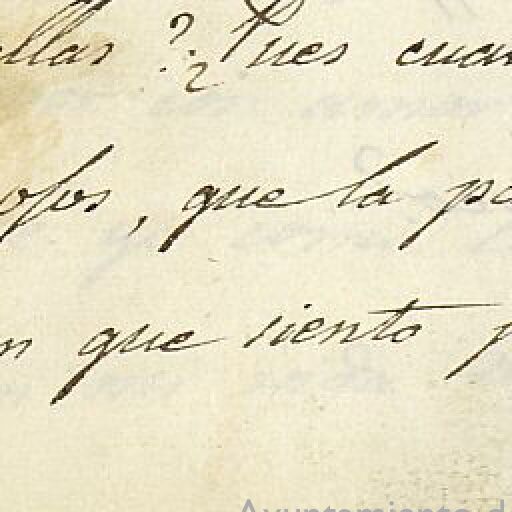 ellas ? ¿Pues cuan
ofos, que la pa
n que siento p
Ayuntamiento d